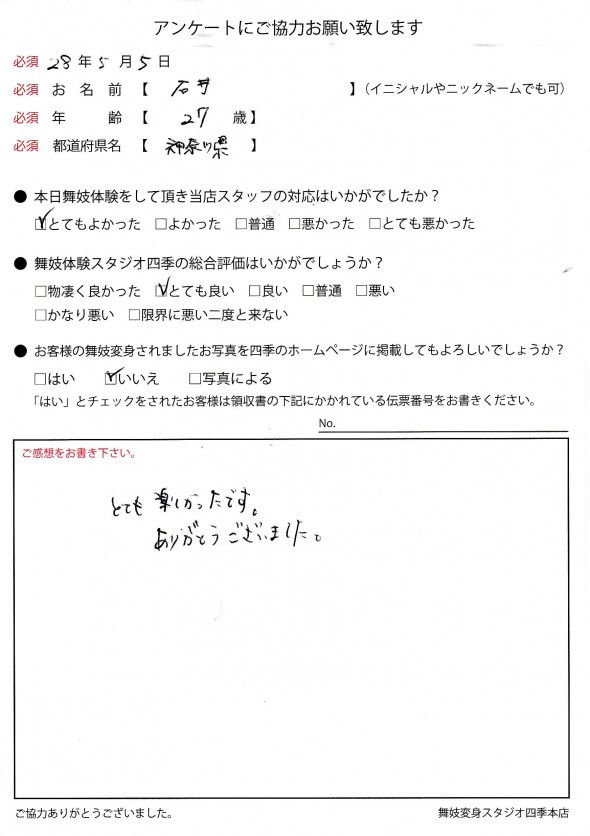 アンケートにご協力お願い致します
必須 28年5月5日
必須 お名前【 石井 】(イニシャルやニックネームでも可)
必須 年齢【 27 歳】
必須 都道府県名【 神奈川県 】
● 本日舞妓体験をして頂き当店スタッフの対応はいかがでしたか？
☑とてもよかった □よかった □普通 □悪かった □とても悪かった
● 舞妓体験スタジオ四季の総合評価はいかがでしょうか？
□物凄く良かった ☑とても良い □良い □普通 □悪い
□かなり悪い □限界に悪い二度と来ない
● お客様の舞妓変身されましたお写真を四季のホームページに掲載してもよろしいでしょうか？
□はい ☑いいえ □写真による
「はい」とチェックをされたお客様は領収書の下記にかかれている伝票番号をお書きください。
No.
ご感想をお書き下さい。
とても楽しかったです。
ありがとうございました。
ご協力ありがとうございました。
舞妓変身スタジオ四季本店